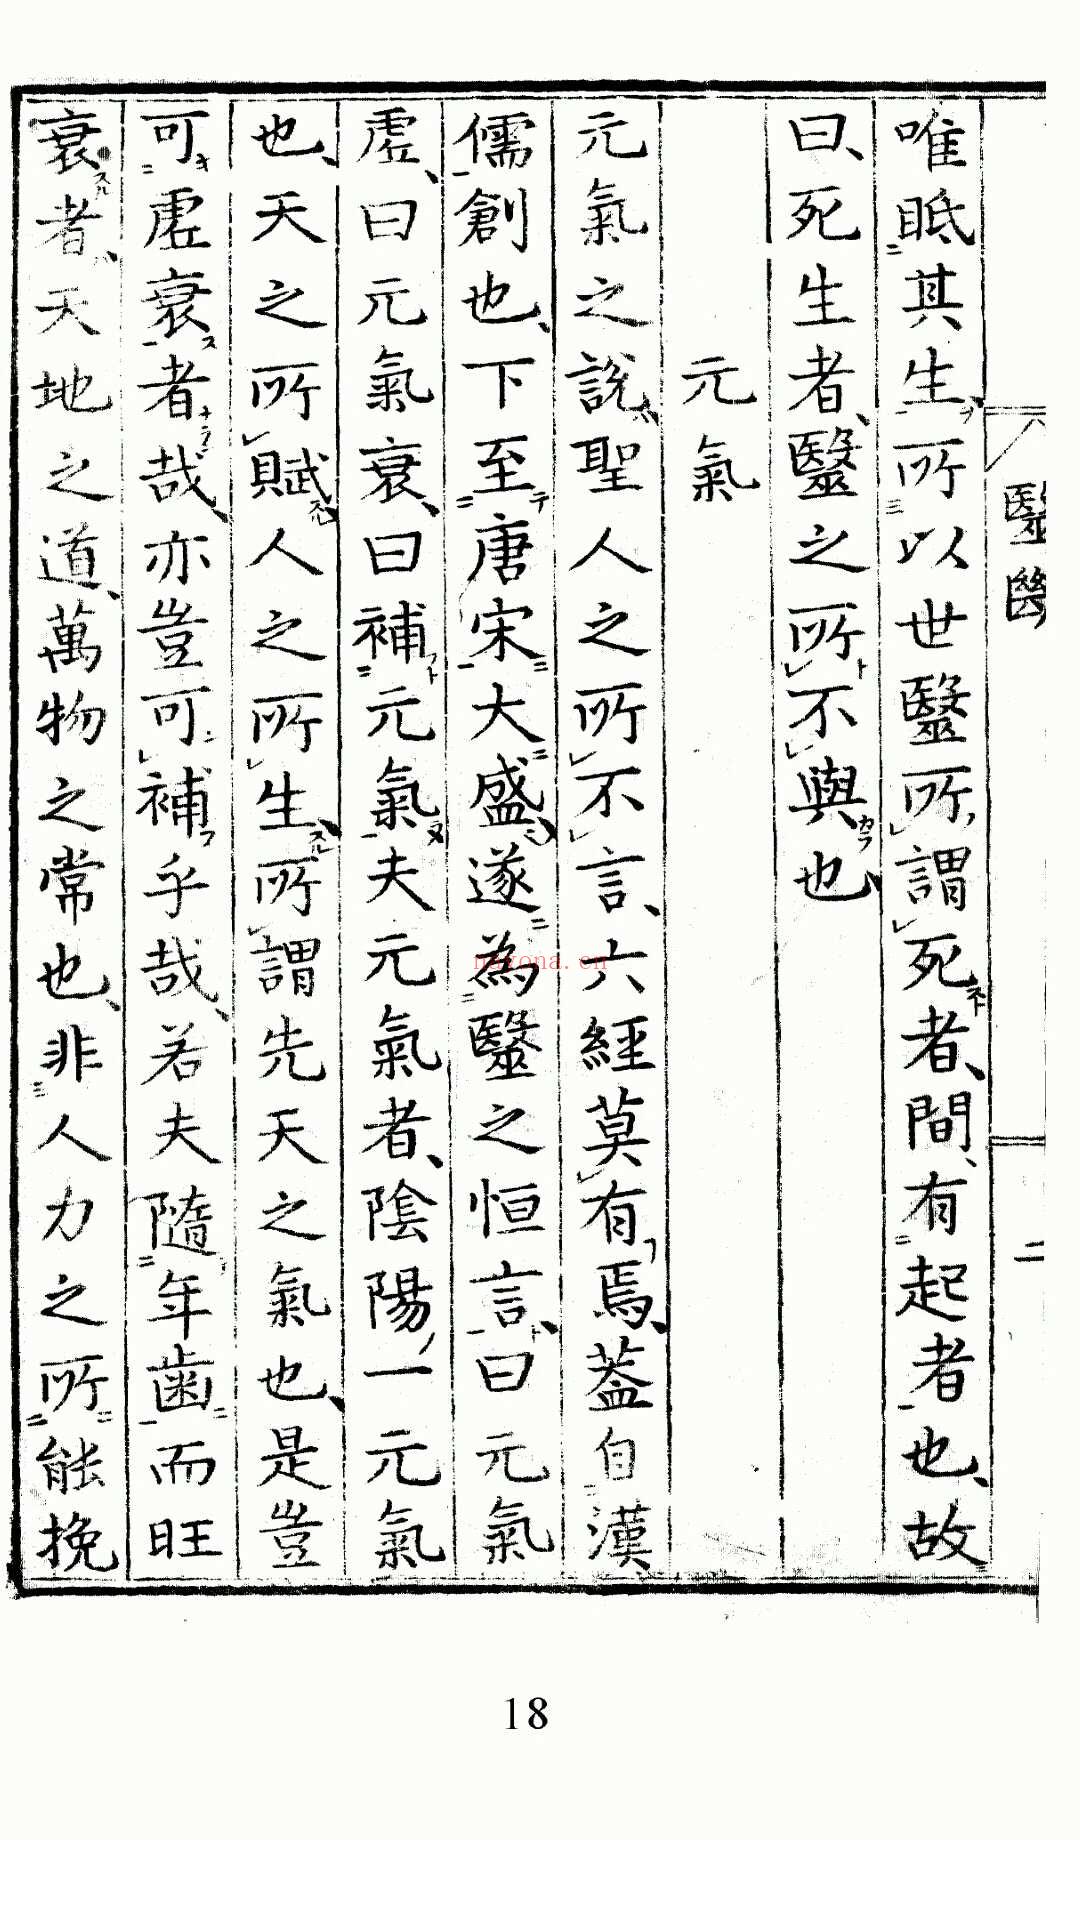 醫斷
二
唯眂其生、所以世毉所謂死者、間有起者也、故
曰、死生者、毉之所不與也
元氣
元氣之説、聖人之所不言、六經莫有焉、蓋自漢
儒創也、下至唐宋大盛、遂為毉之恒言、曰元氣
虛、曰元氣衰、曰補元氣夫元氣者、陰陽一元氣
也、天之所賦人之所生、所謂先天之氣也、是豈
可虛衰者哉、亦豈可補乎哉、若夫隨年歯而旺
衰者、天地之道、萬物之常也、非人力之所能挽
nayona.cn
18